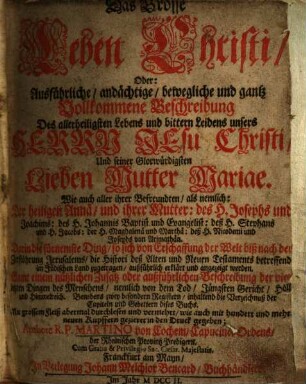 Das Grosse
Leben Christi/
Oder:
Ausführliche/ andächtige/ bewegliche und gantz
Vollkommene Beschreibung
Des allerheiligsten Lebens und bittern Leidens unsers
HERRN JESu Christi/
Und seiner Glorwürdigsten
Lieben Mutter Mariae.
Wie auch aller ihrer Befreundten/ als nemlich:
Der heiligen Annä/ und ihrer Mutter: des H. Josephs und
Joachims: des H. Johannis Baptistä und Evangelist: des H. Stephans
und H. Jacobs: der H. Magdalenä und Marthä: des H.
Josephs von Arimathäa.
Dann die fürnemste Ding/ so sich von Erschaffung der Welt biß nach der
Zerstörung Jerusalems/ die Histori des Alten und Neuen Testaments betreffend
im Jüdischen Land zugetragen/ ausführlich erklärt und angezeigt werden.
Samt einem nützlichen Zusatz oder ausführlichen Beschreibung der vier
letzten Dingen des Menschens/ nemlich von dem Tod/ Jüngsten Gericht/ Höll
und Himmelreich. Benebenst zwey besondern Registern/
Capiteln und Gebettern dieses Buchs.
Mit grossem Fleiß abermal durchlesen und vermehret/ wie auch mit hundert und mehr
neuen Kupffern gezieret in den Druck gegeben/
Authore R. P. MARTINO von Cochem/ Capuciner Ordens/
der Rheinischen Provintz Predigern.
Cum Gratia & Privilegio Sac. Caesar. Majestatis.
Franckfurt am Mayn/
In Verlegung Johann Melchior Bencard/ Buchhändlers.
Im Jahr M DCC II.